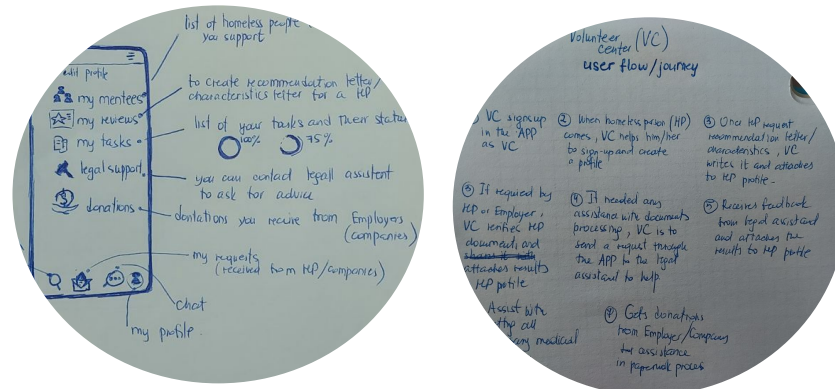 list of homeless people
you support
edit profile
my mentees
to create recommendation letter/
characteristics letter for a HP
my reviews
list of your tasks and their status
100% 75%
my tasks
legal support
you can contact legall assistent
to ask for advice
donations
dontations you receive from Employers
(companies)
my requests
(received from HP/companies)
chat
my profile.
Volunteer
center (VC)
user flow/journey
VC signs up
in the APP
as VC
② When homeless person (HP)
comes, VC helps him/her
to sign-up and create
a profile
③ Once HP request
recommendation letter/
characteristics, VC
writes it and attaches
to HP profile.
③ If required by
HP or Employer,
VC verifies HP
documents and
attaches results
HP profile
④ If needed any
assistance with documents
processing, VC is to
send a request through
the APP to the legal
assistant to help
⑤ Receives feedback
from legal assistand
and attaches the
results to HP profile
Assist with
all
any medical
Gets donations
from Employer/Company
for assistance
in paperwork proces